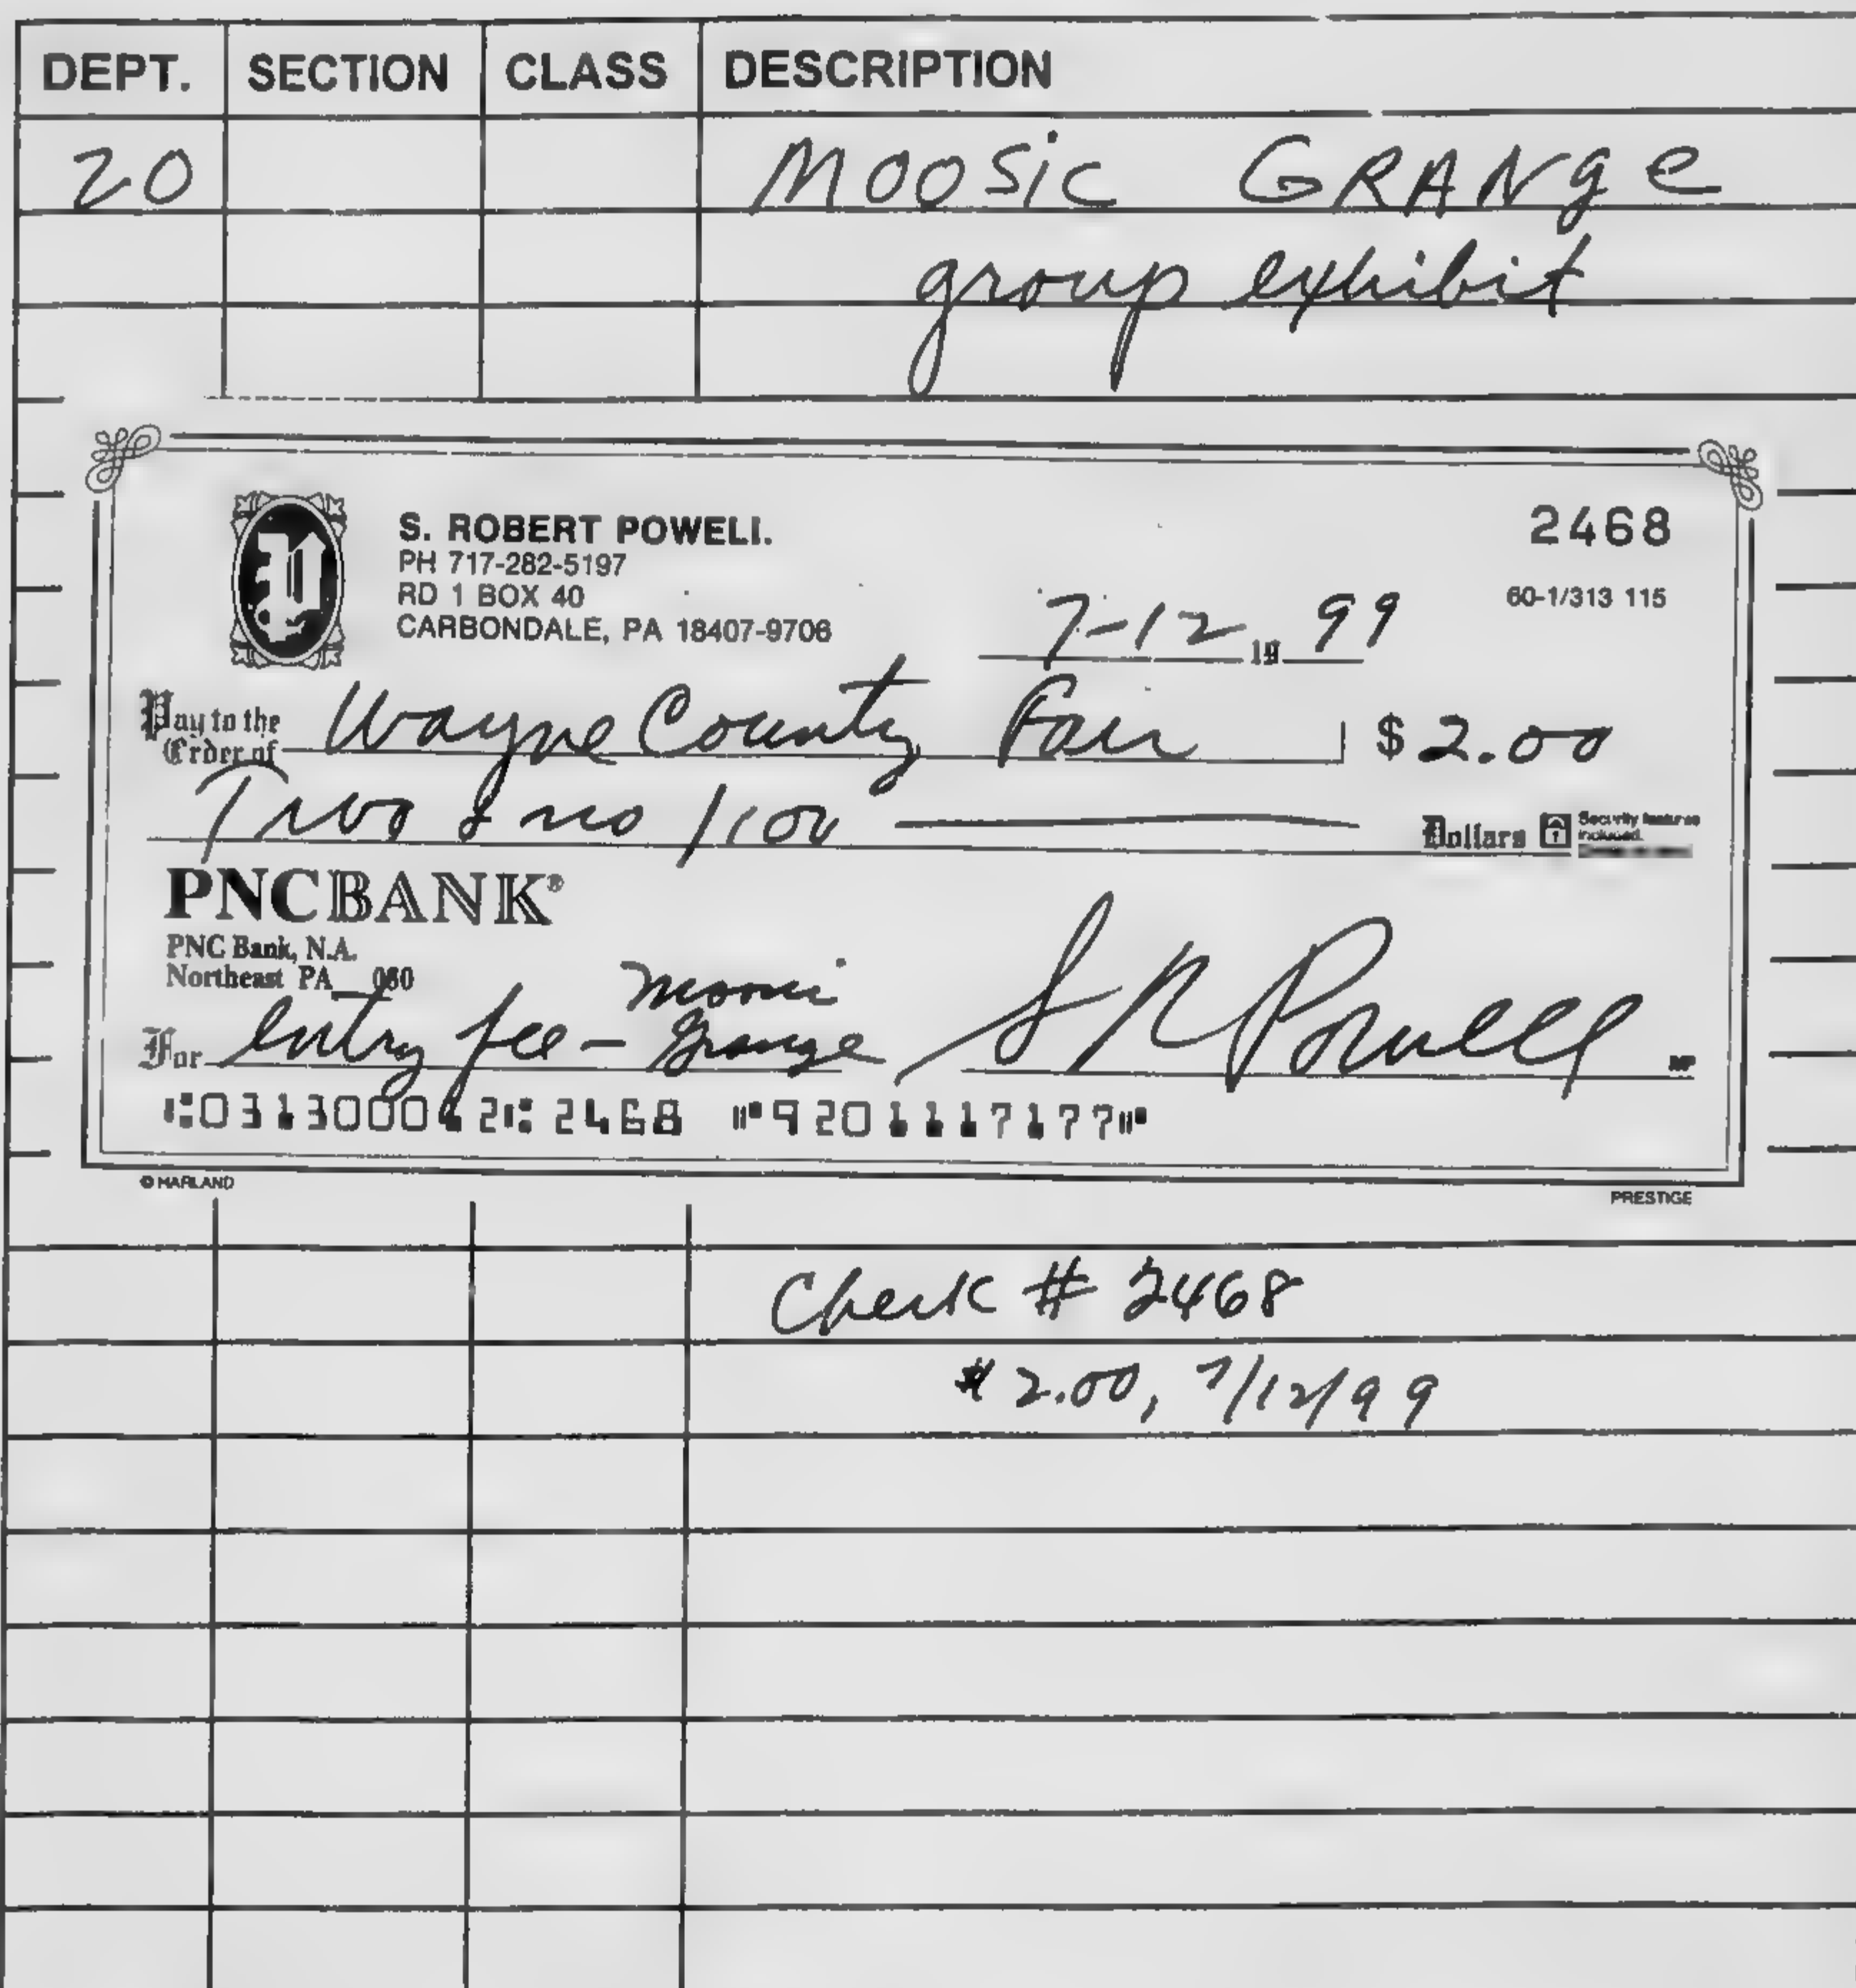 DEPT. SECTION CLASS DESCRIPTION
20 MOOSIC GRANge
group exhibit
S. ROBERT POWELL 2468
PH 717-282-5197
RD 1 BOX 40 60-1/313 115
CARBONDALE, PA 18407-9706
7-12 19 99
Pay to the
Order of Wayne County Fair $ 2.00
Two & no /100 Dollars Security features
included.
PNCBANK®
PNC Bank, N.A.
Northeast PA 060
Moosic
For entry fee - Grange S R Powell MP
⑆031300012⑆ 2468 ⑈9201117177⑈
© HARLAND PRESTIGE
Check # 2468
$2.00, 7/12/99